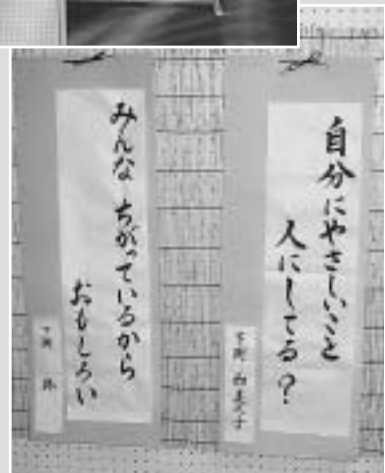 自分にやさしいこと
人にしてる?
みんな ちがっているから
おもしろい